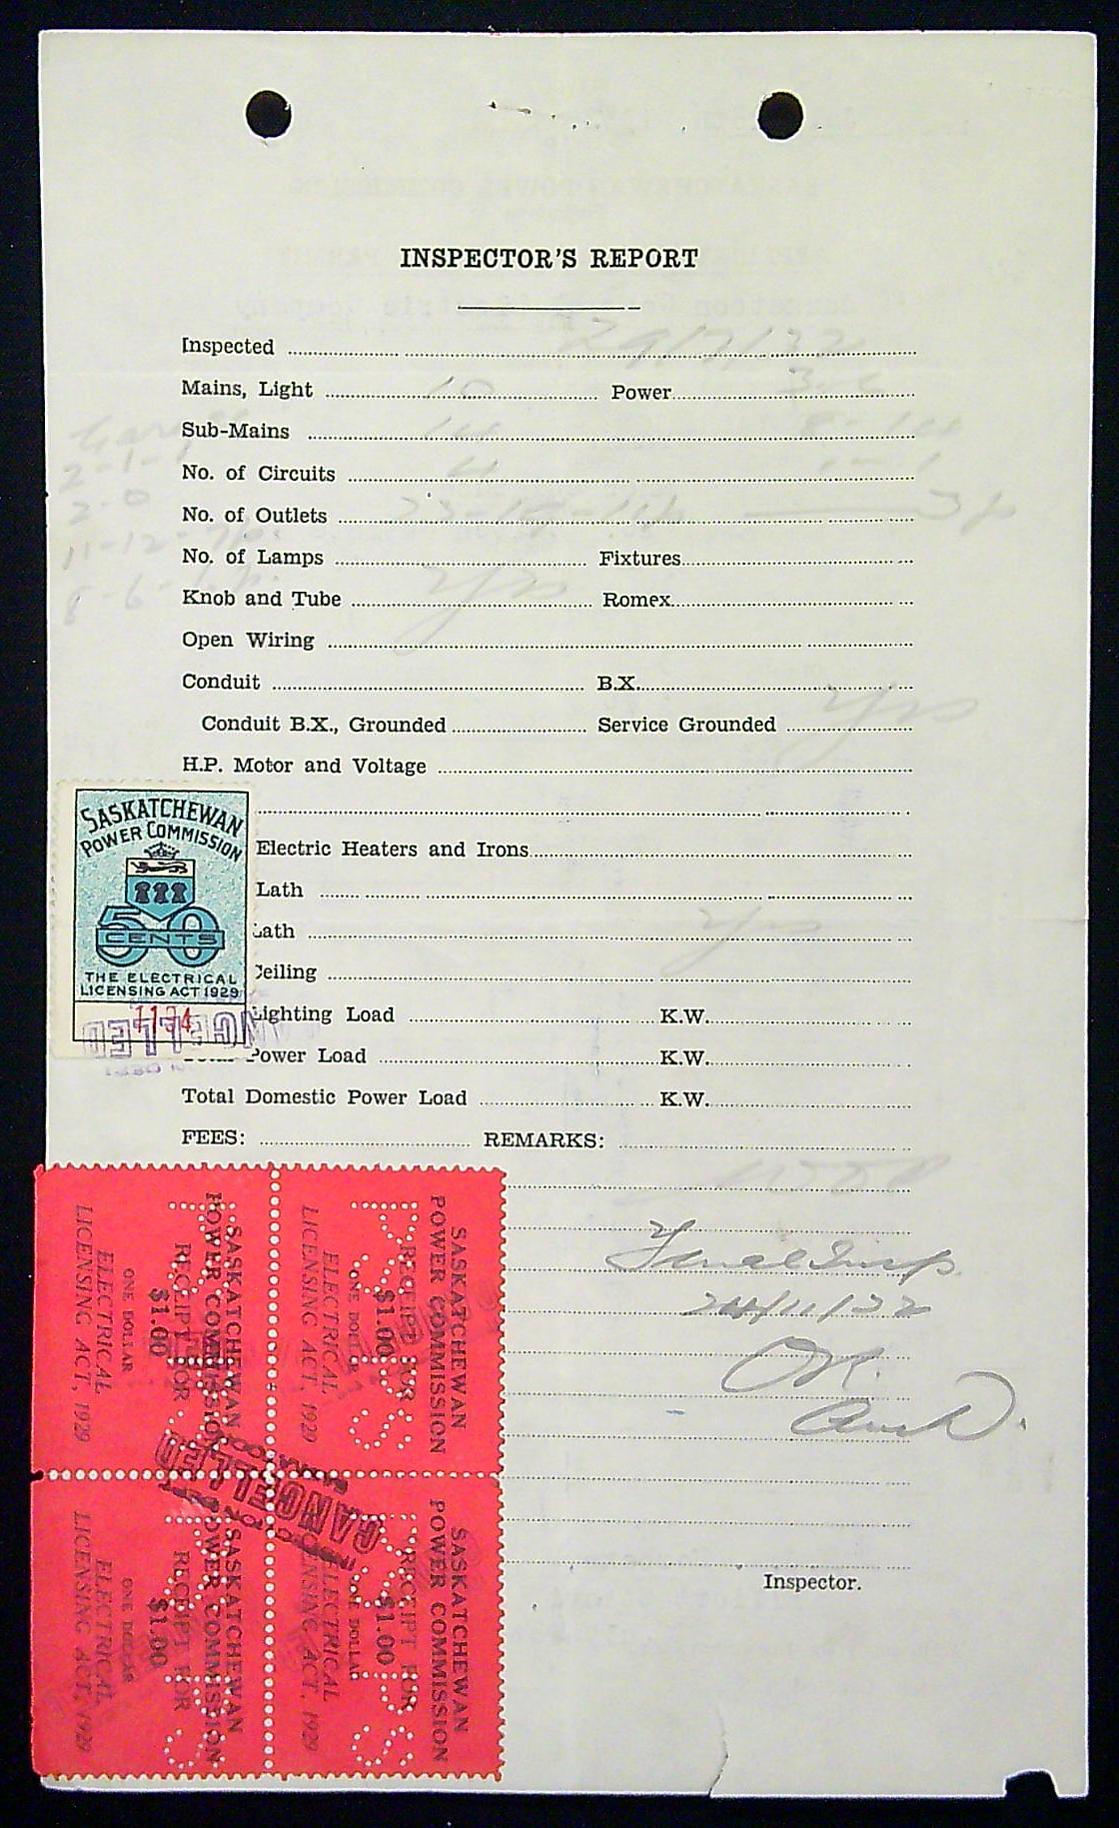 INSPECTOR'S REPORT
Inspected 29/7/32
Mains, Light 10 Power 3-6
Sub-Mains 14
No. of Circuits 4
No. of Outlets
No. of Lamps Fixtures
Knob and Tube yes Romex
Open Wiring
Conduit B.X.
Conduit B.X., Grounded Service Grounded yes
H.P. Motor and Voltage
Electric Heaters and Irons
Lath
Lath yes
Ceiling
Lighting Load K.W.
Power Load K.W.
Total Domestic Power Load K.W.
FEES: REMARKS:
Final Insp
24/11/32
OK.
Inspector.
SASKATCHEWAN
POWER COMMISSION
50
CENTS
THE ELECTRICAL
LICENSING ACT 1929
1134
CANCELLED
SASKATCHEWAN
POWER COMMISSION
RECEIPT FOR
$1.00
ONE DOLLAR
ELECTRICAL
LICENSING ACT, 1929
SASKATCHEWAN
POWER COMMISSION
RECEIPT FOR
$1.00
ONE DOLLAR
ELECTRICAL
LICENSING ACT, 1929
SASKATCHEWAN
POWER COMMISSION
RECEIPT FOR
$1.00
ONE DOLLAR
ELECTRICAL
LICENSING ACT, 1929
SASKATCHEWAN
POWER COMMISSION
RECEIPT FOR
$1.00
ONE DOLLAR
ELECTRICAL
LICENSING ACT, 1929
CANCELLED